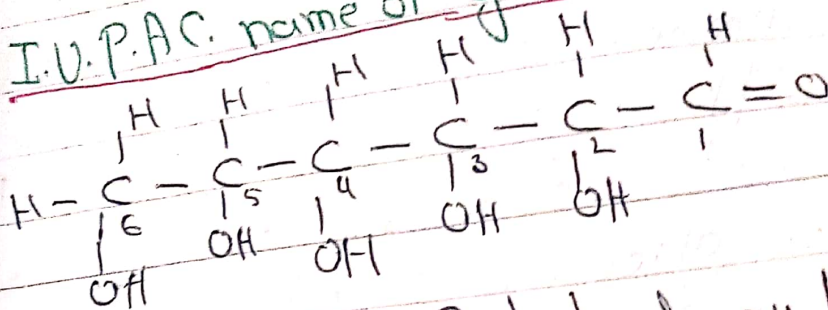 I.U.P.A.C. name
H H H H H H
H - C - C - C - C - C - C = O
6 5 4 3 2 1
OH OH OH OH OH